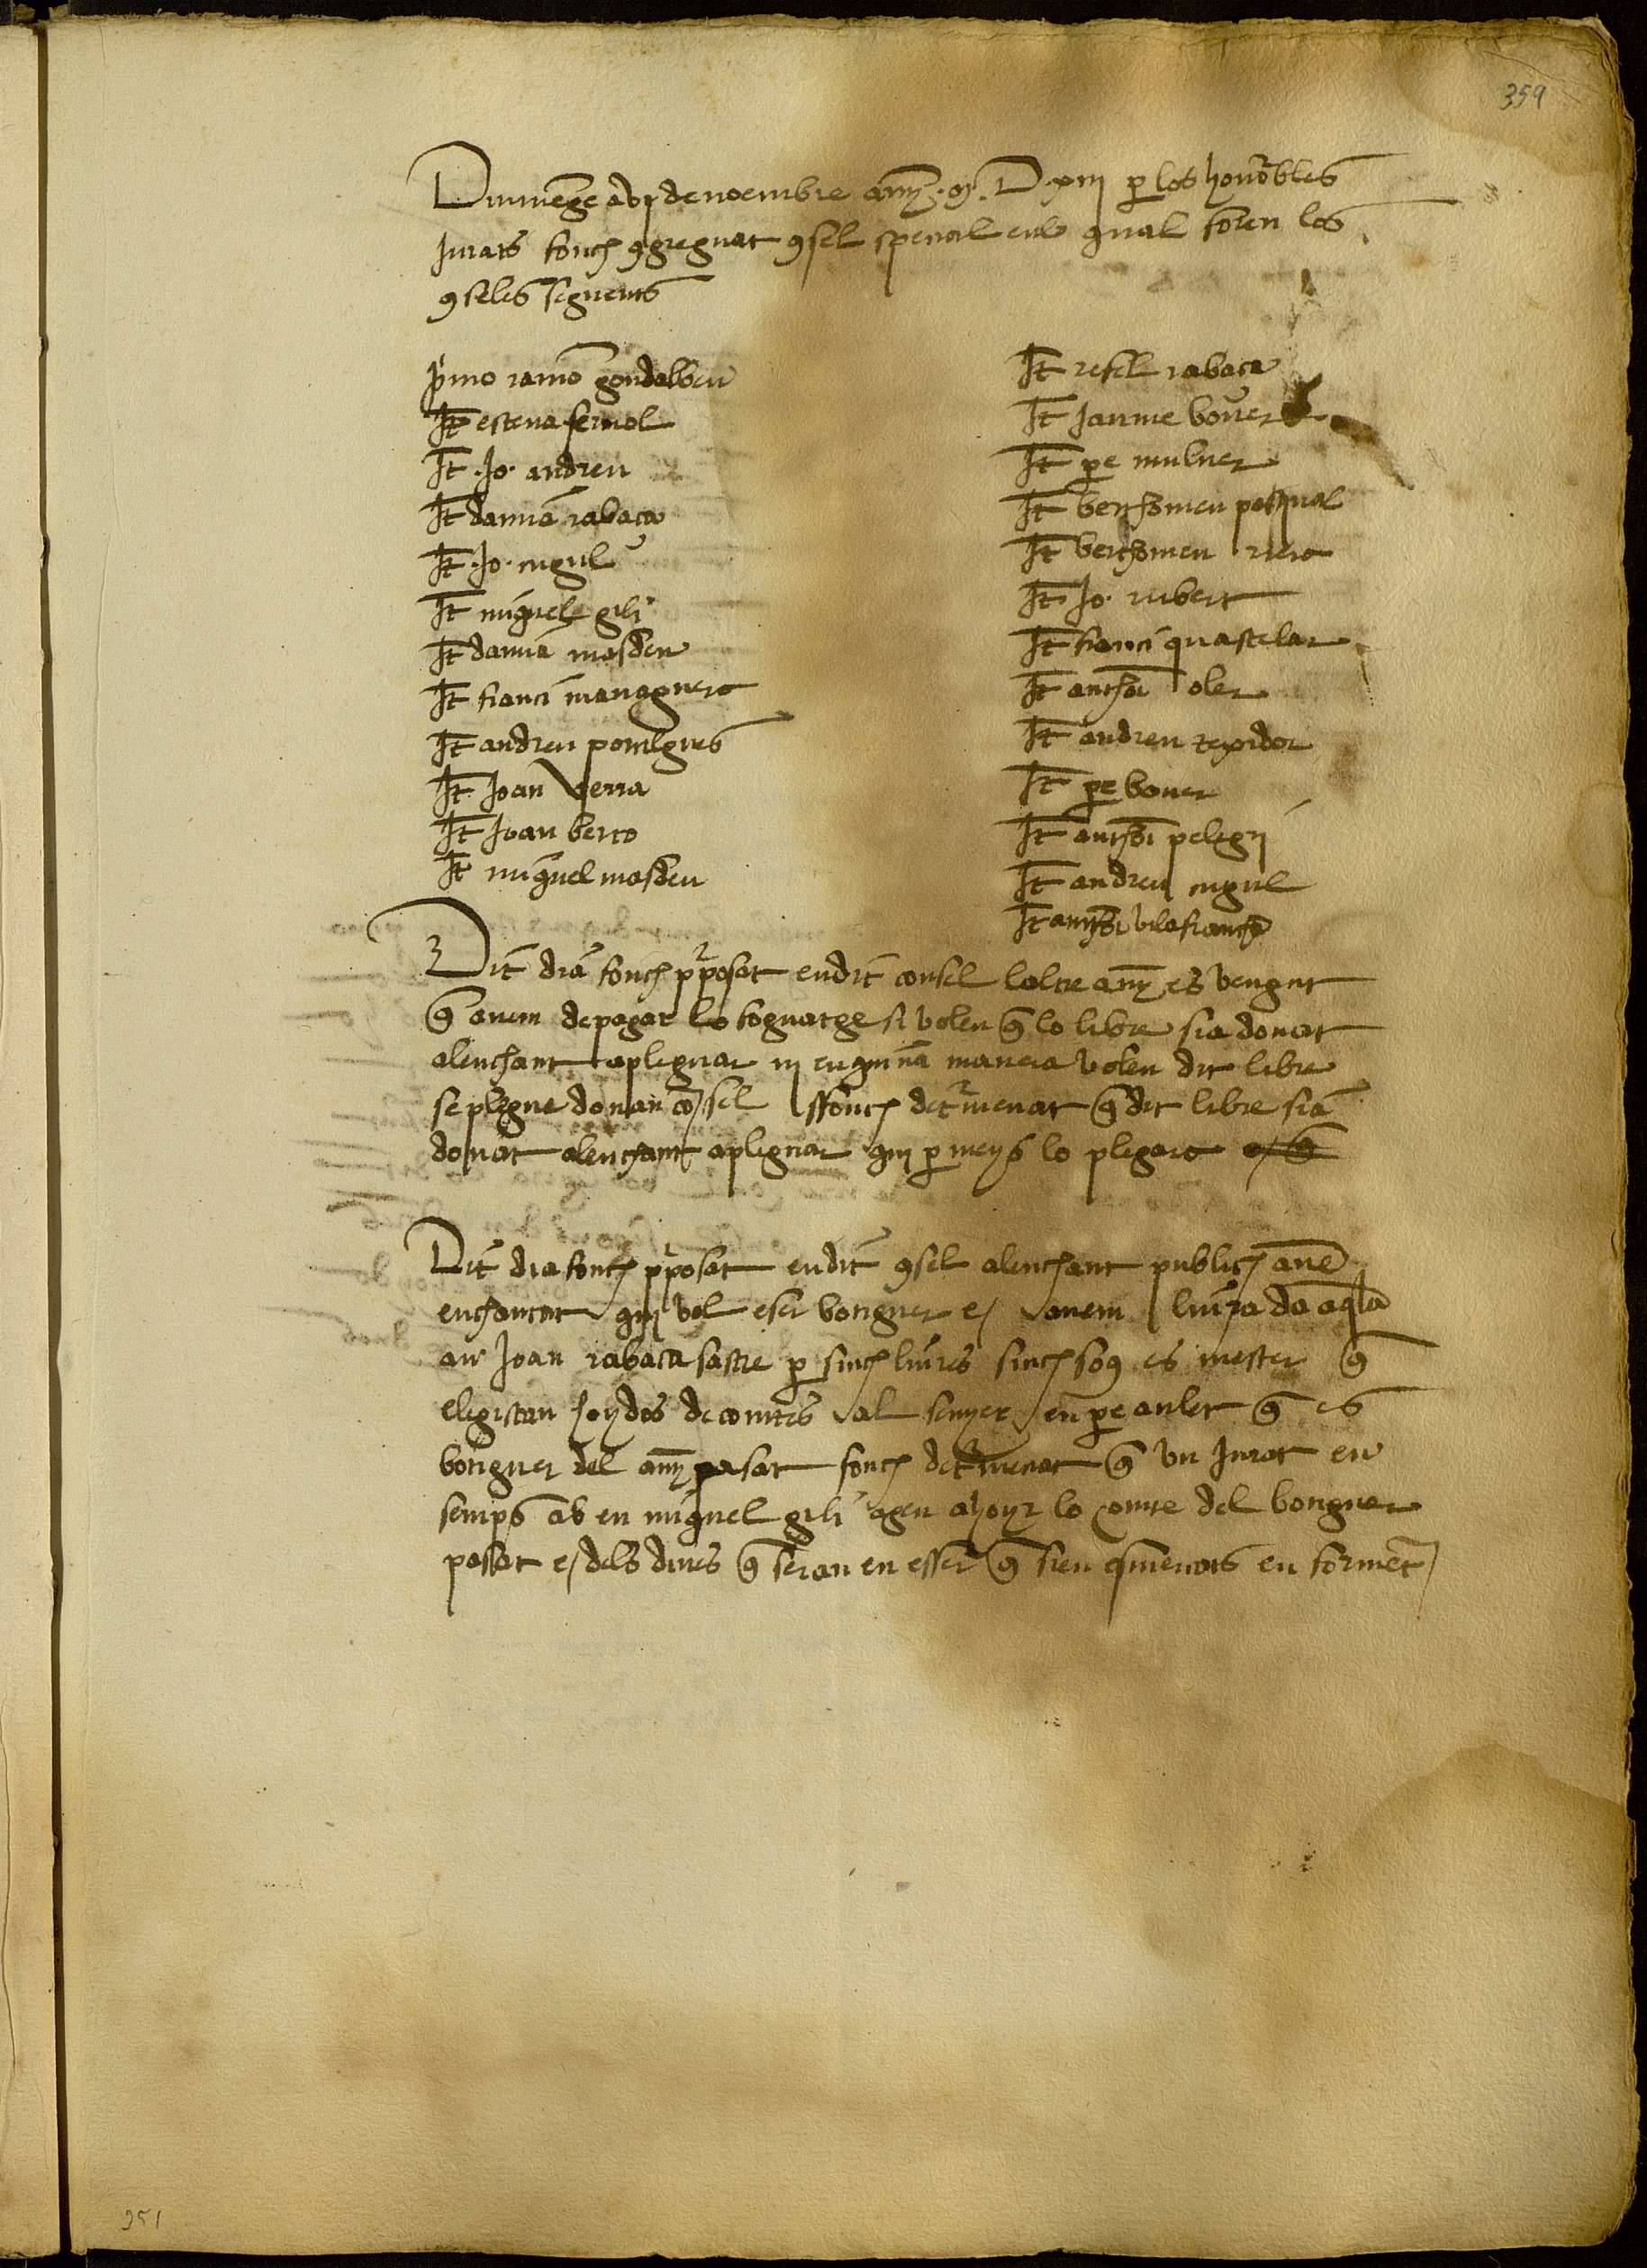 359
Diumenge a vj de noembre any .M. D.xiij p los honorbles
Jurats fonch 9greguat 9sel spesial en lo qual foren los
9seles seguents
pmo ramo gondalbeu
It esteva fernol
It .Jo. andreu
It damia rabaca
It .Jo. cugul
It miguel gili
It damia masdeu
It franci managuera
It andreu
It Joan verra
It Joan berto
It miguel masdeu
It refel rabaca
It Jaume bover
It pe mulner
It berthomeu pasqual
It berthomeu riera
It Jo. rubert
It franci quastelar
It anthoni oler
It andreu texidor
It pe bover
It anthoni pelegri
It andreu cugul
It anthoni vilafrancha
Dit dia fonch pposat en dit consel laltre any es vengut
q avem de pagar lo foguatge si volen q lo libre sia donat
alenchant apleguar ni en quina manera volen dit libre
se plegue donan consel ffonch detrmenat q dit libre sia
donat alenchant apleguar qui p meys lo plegara
Dit dia fonch pposat en dit 9sel alenchant publich avem
enchantat qui vol eser botiguer e avem liurada aqla
an Joan rabaca sastre p sinch liures sinch sos es mester q
elegiscan hoydos de contes al senyer en pe anlet q es
botiguer del any pasat fonch detrmenat q un Jurat en
semps ab en miguel gili agen a hoyr lo conte del botiguer
passat e dels dines q seran en esser q sien smersats en forment
351